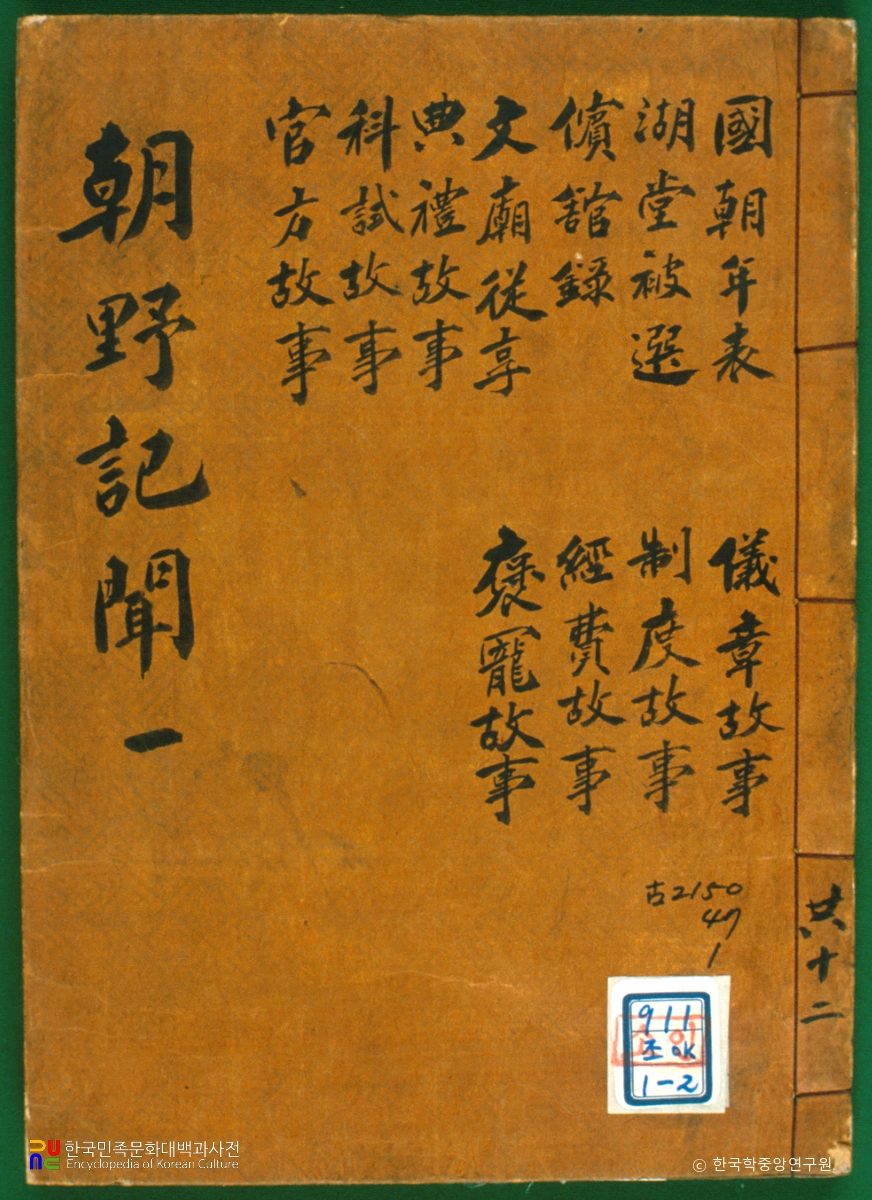 國朝年表
湖堂被選
儐館錄
文廟從享
典禮故事
科試故事
官方故事
儀章故事
制度故事
經費故事
褒寵故事
朝野記聞 一
共十二
古2150
47
1
911
조
1-2
한국민족문화대백과사전
Encyclopedia of Korean Culture
© 한국학중앙연구원